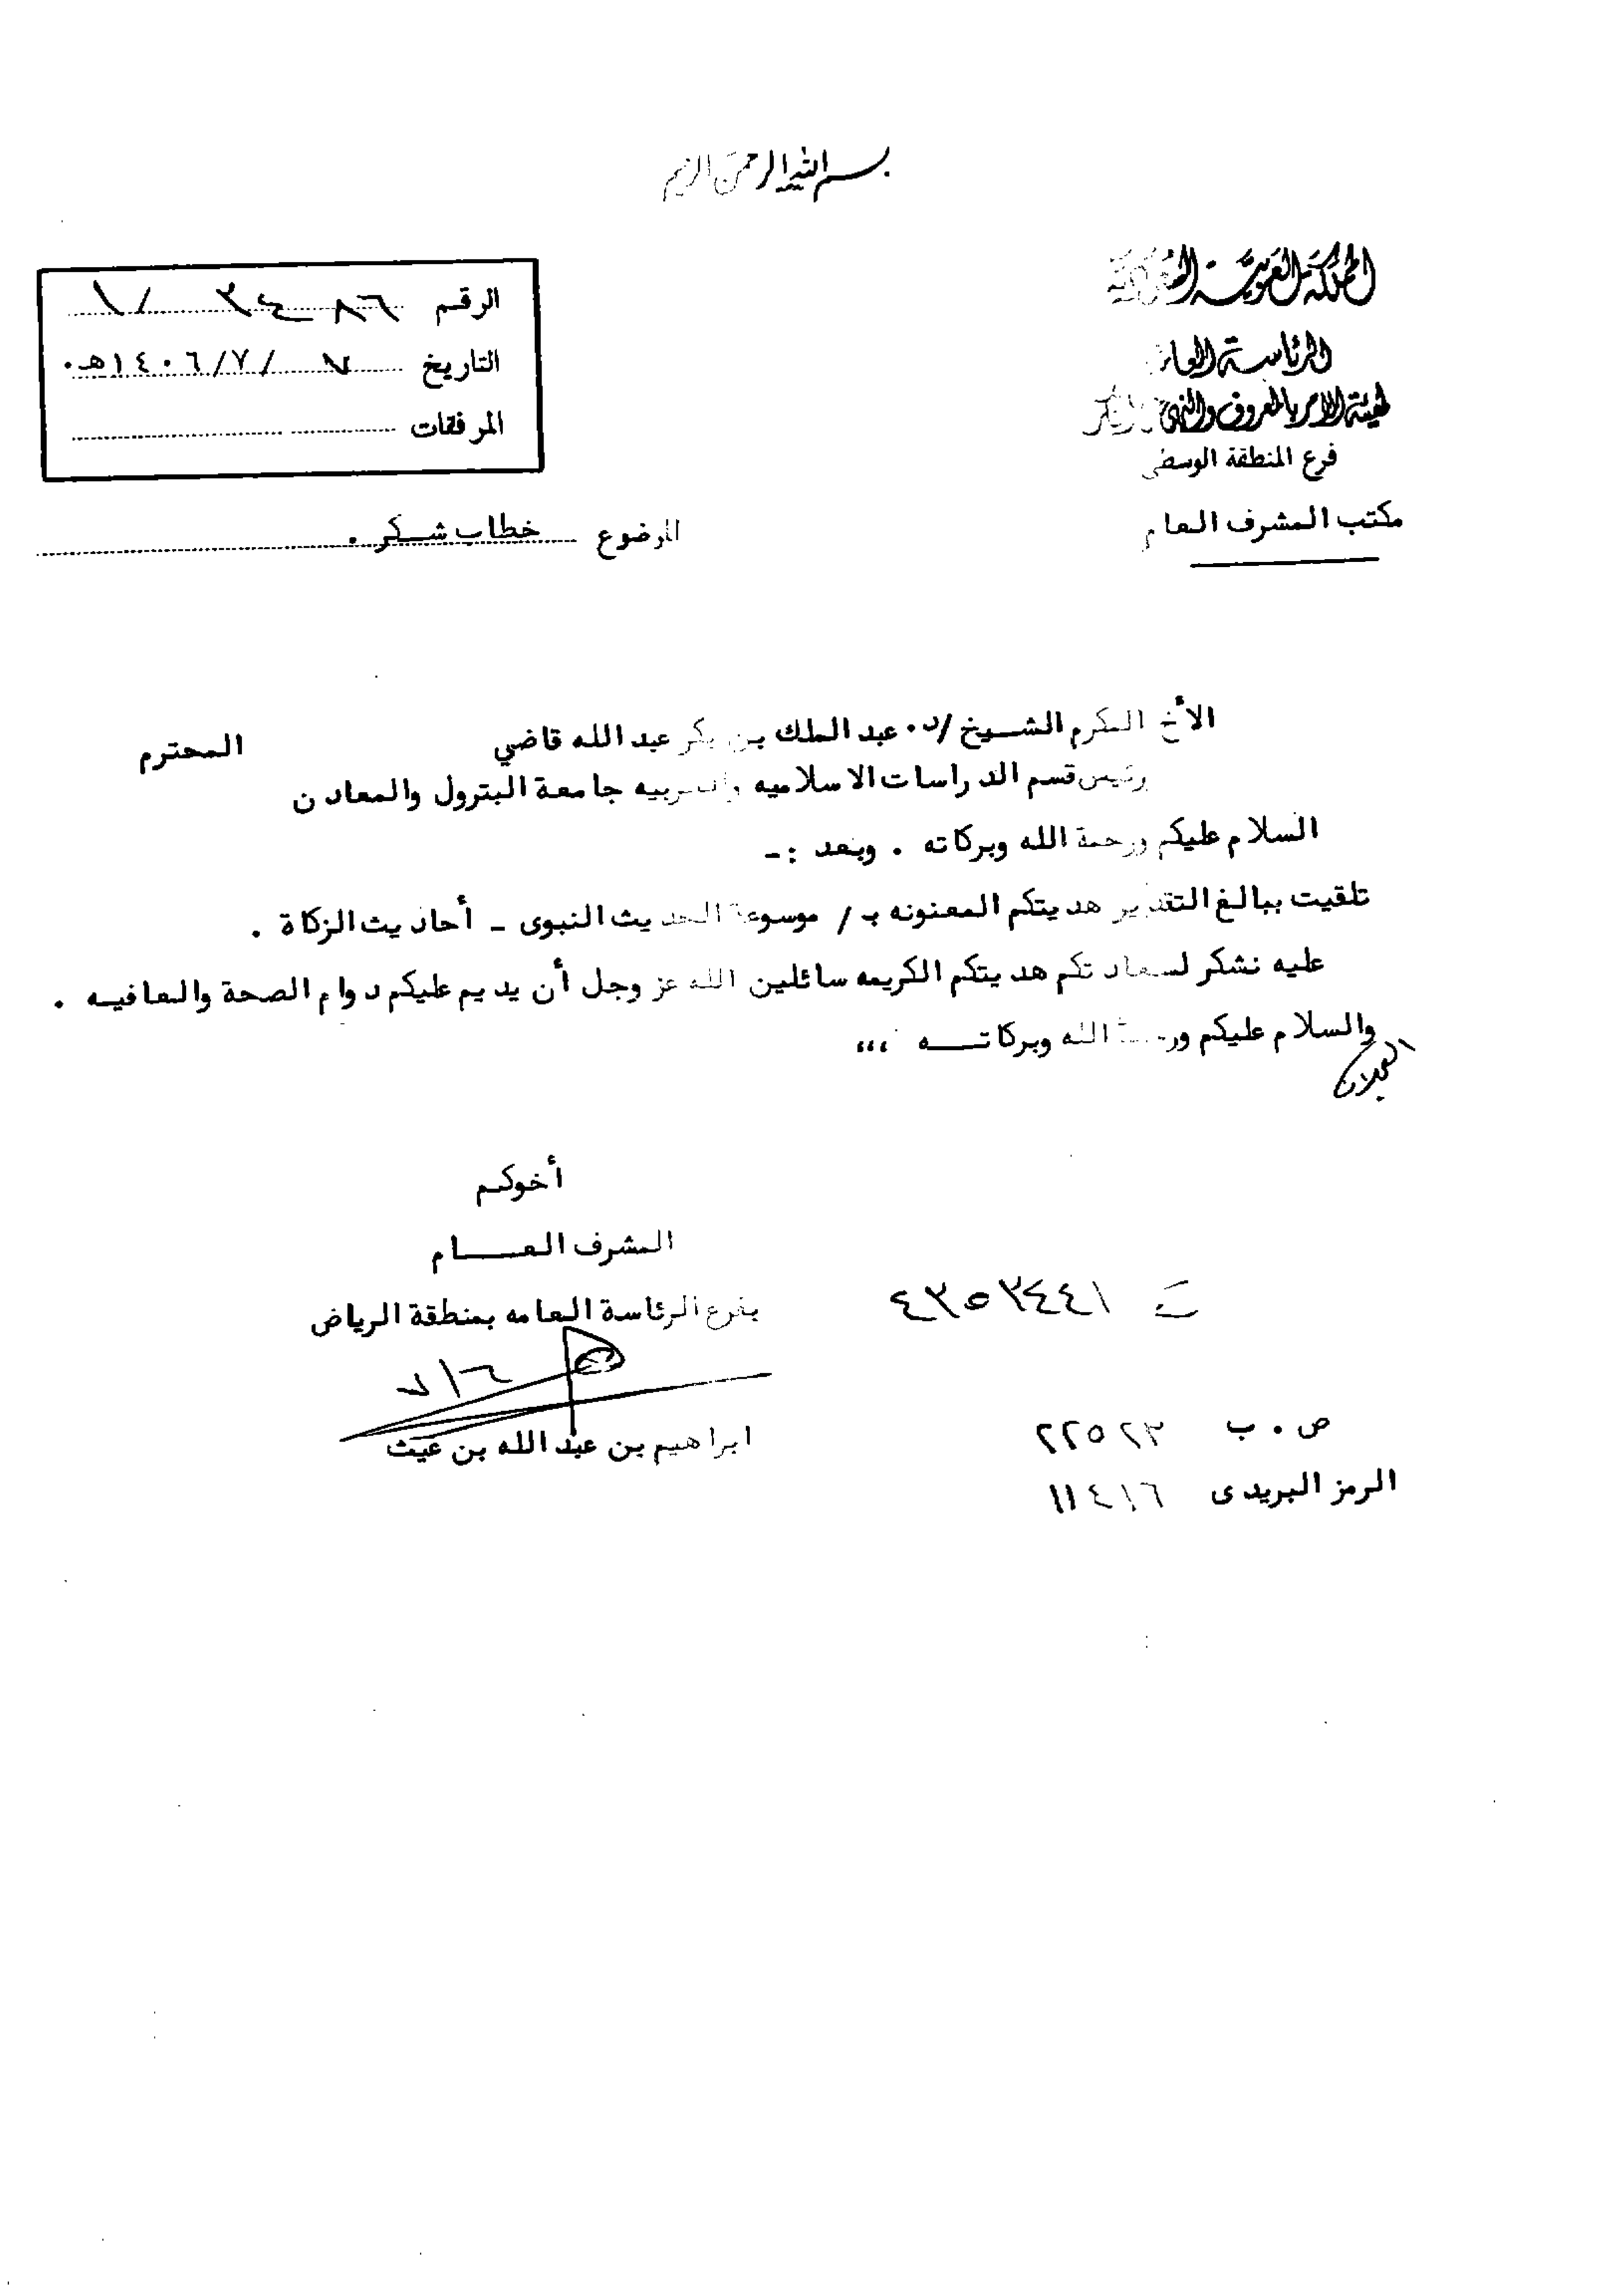 بسم الله الرحمن الرحيم
المملكة العربية السعودية
الرئاسة العامة
لهيئة الأمر بالمعروف والنهي عن المنكر
فرع المنطقة الوسطى
مكتب المشرف العام
الرقم
التاريخ ٧ / ٧ / ١٤٠٦هـ.
المرفقات
الموضوع خطاب شكر .
الأخ المكرم الشيخ / د. عبد الملك بن بكر عبد الله قاضي المحترم
رئيس قسم الدراسات الاسلاميه والعربيه جامعة البترول والمعادن
السلام عليكم ورحمة الله وبركاته . وبعد :-
تلقيت ببالغ التقدير هديتكم المعنونه بـ / موسوعة الحديث النبوى - أحاديث الزكاة .
عليه نشكر لسعادتكم هديتكم الكريمه سائلين الله عز وجل أن يديم عليكم دوام الصحة والعافيه .
والسلام عليكم ورحمة الله وبركاته ،،،
أخوكم
المشرف العام
بفرع الرئاسة العامه بمنطقة الرياض
٧/٦
ابراهيم بن عبد الله بن غيث
ت ٤٣٥٣٤٤١
ص . ب ٢٢٥٢٣
الرمز البريدى ١١٤١٦